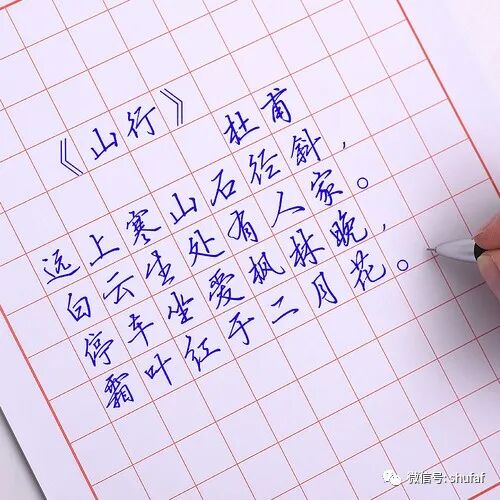 《山行》 杜甫
远上寒山石径斜，
白云生处有人家。
停车坐爱枫林晚，
霜叶红于二月花。
微信号: shufaf